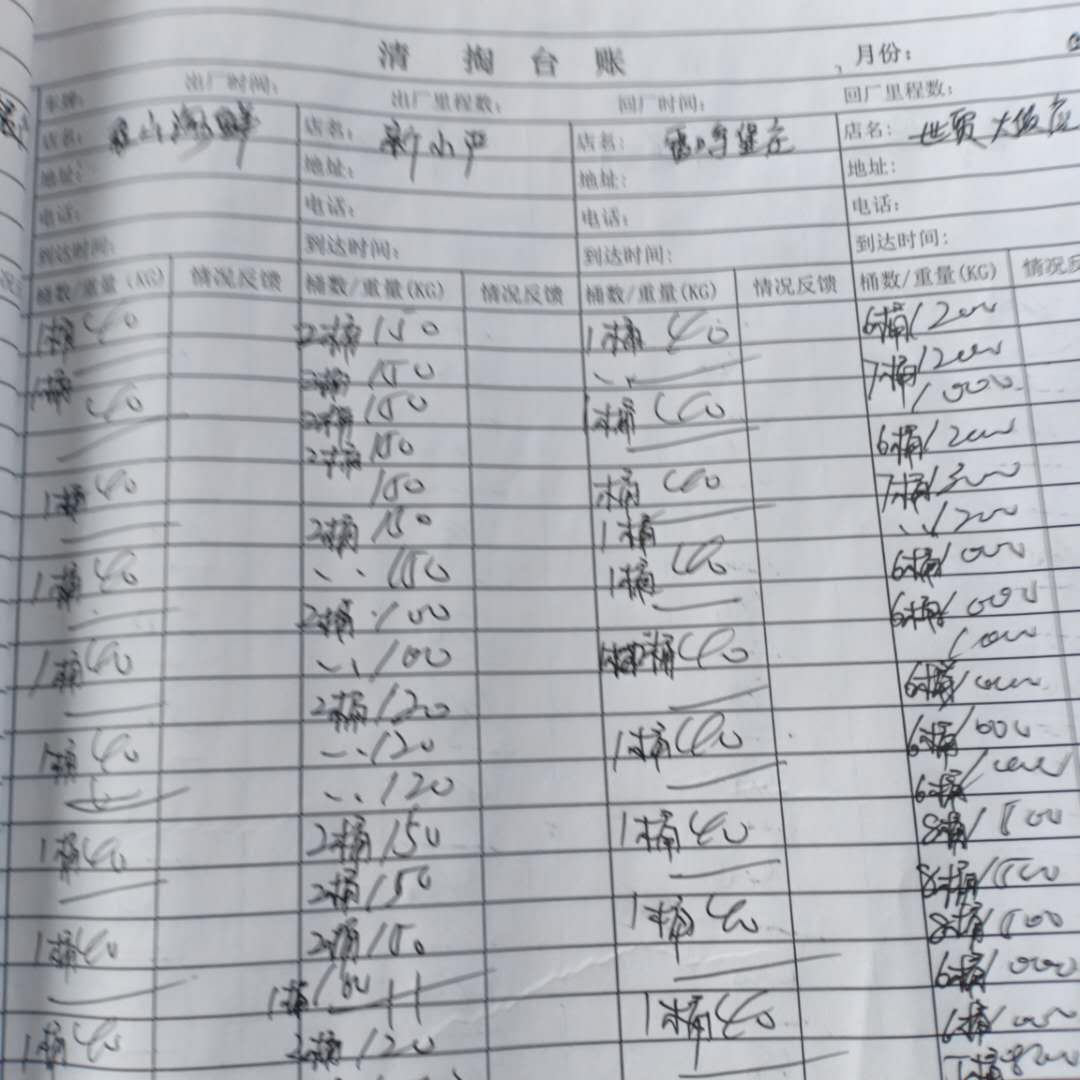 清掏台账 月份：
车牌： 出厂时间： 出厂里程数： 回厂时间： 回厂里程数：
店名： 店名： 新小严 店名： 店名： 世贸大饭店
地址： 地址： 地址： 地址：
电话： 电话： 电话： 电话：
到达时间： 到达时间： 到达时间： 到达时间：
桶数/重量(KG) 情况反馈 桶数/重量(KG) 情况反馈 桶数/重量(KG) 情况反馈 桶数/重量(KG) 情况反
1桶 40 2桶 150 1桶 40 6桶 1200
1桶 2桶 150 7桶 1200
40 2桶 150 1桶 40 1000
2桶 150 6桶 1200
1桶 40 150 1桶 40 7桶
2桶 150 1桶 1200
1桶 40 150 1桶 40 6桶 1000
2桶 100 6桶 1000
1桶 40 100 桶 40 1000
2桶 120 6桶 1000
1桶 40 120 1桶 40 6桶 1000
120 6桶 1000
1桶 40 2桶 150 1桶 40 8桶 1500
2桶 150 8桶 1500
1桶 40 2桶 150 1桶 40 8桶 1500
1桶 6桶 1000
1桶 40 2桶 120 1桶 40 6桶 1000